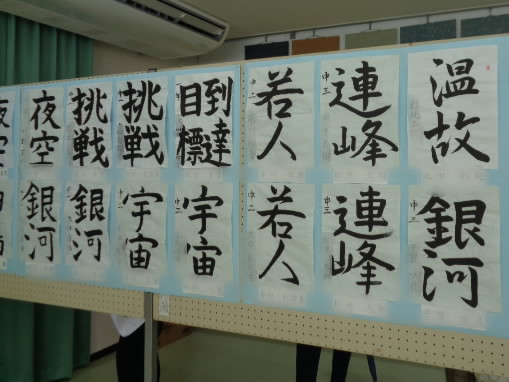 夜空
夜空
挑戦
挑戦
到達
目標
中三
若人
中三
連峰
温故
銀河
銀河
宇宙
中二
宇宙
中二
若人
中三
連峰
中三
銀河